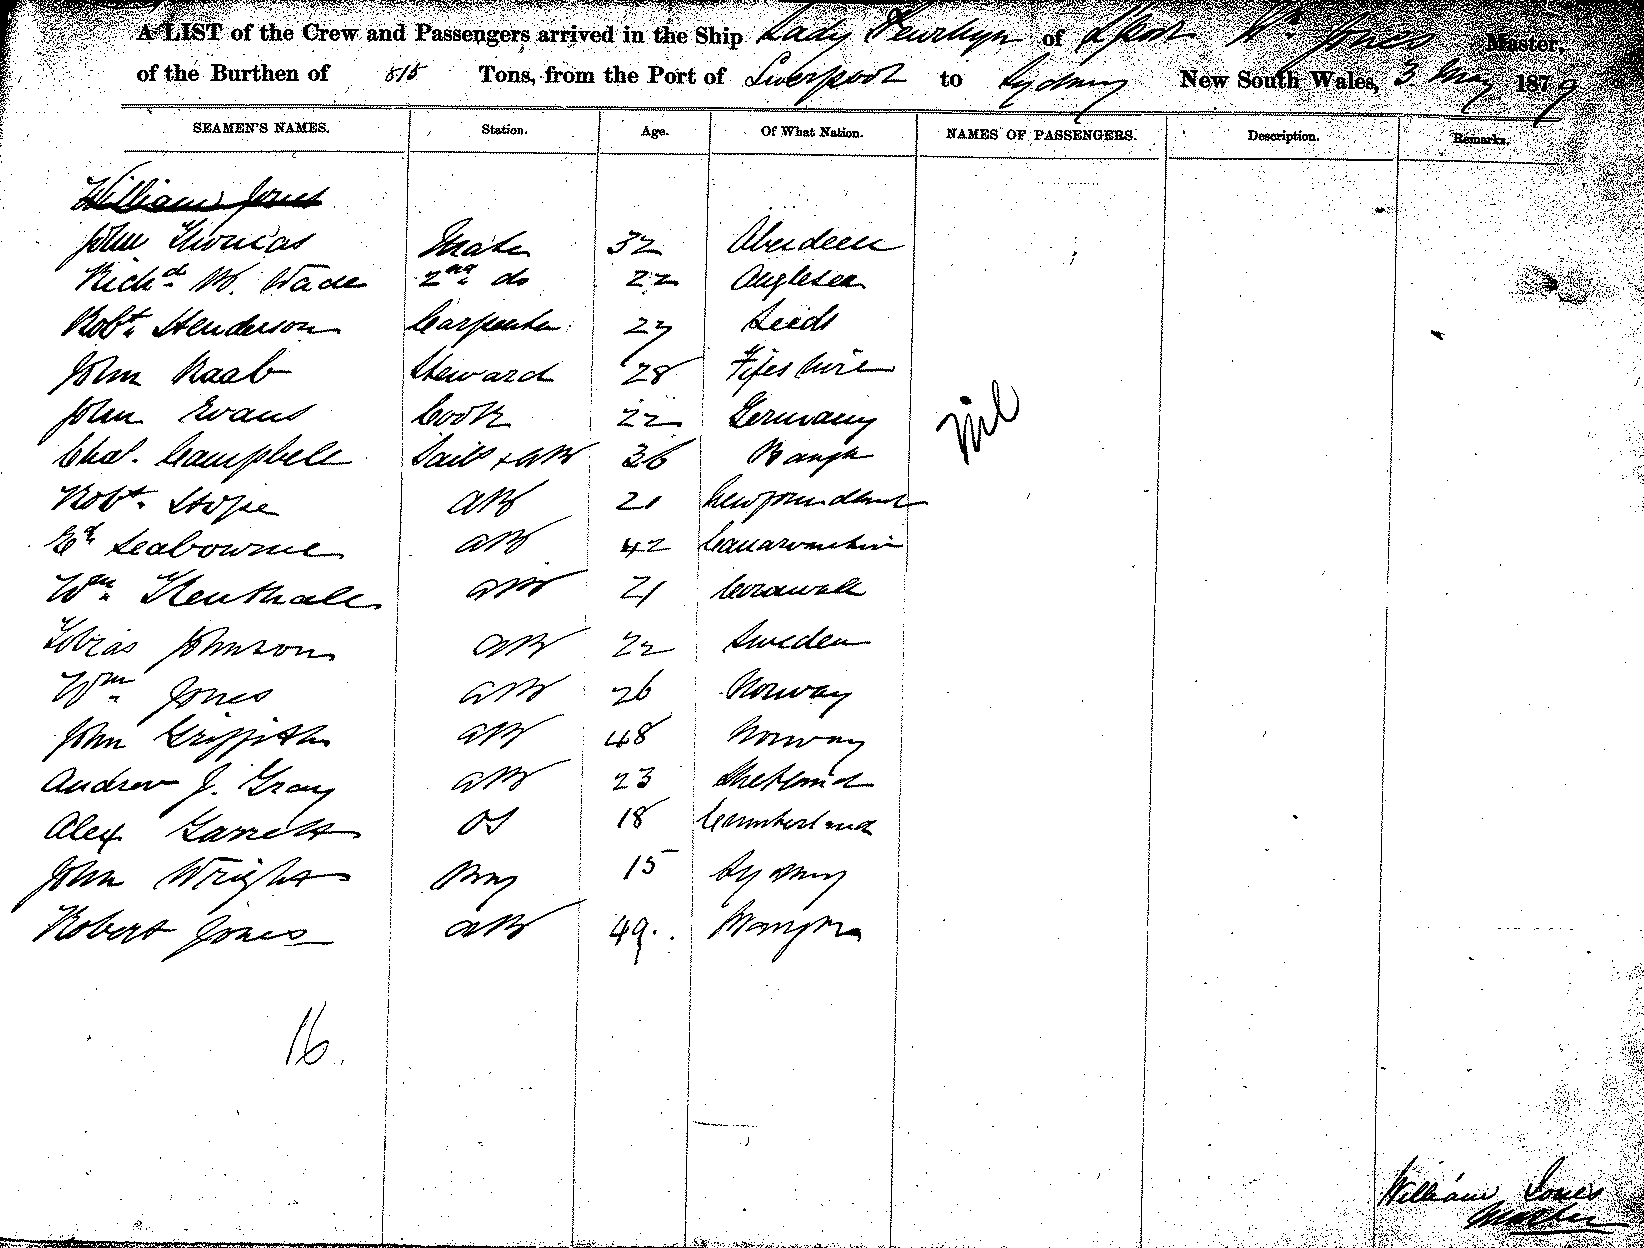 A LIST of the Crew and Passengers arrived in the Ship Lady Penrhyn of Lpool Wm Jones Master,
of the Burthen of 815 Tons, from the Port of Liverpool to Sydney New South Wales, 3 May 1879
SEAMEN'S NAMES. Station. Age. Of What Nation. NAMES OF PASSENGERS. Description. Remarks.
William Jones
John Thomas Mate 32 Aberdeen
Richd W. Wade 2nd do 22 Anglesea
Robt. Henderson Carpenter 27 Leeds
John Raab Steward 28 Fifeshire
John Evans Cook 22 Germany
Chas. Campbell Sails + AB 36 Bangor
Nil
Robt. Hope AB 21 Newfoundland
Ed. Seabourne AB 42 Canarvonshire
Wm. AB 21 Cornwall
Tobias Johnson AB 22 Sweden
Wm. Jones AB 26 Norway
John Griffiths AB 48 Norway
Andrew J. Gray AB 23 Shetland
Alex Garrett OS 18 Cumberland
John Wright Boy 15 Sydney
Robert Jones AB 49.
16.
William Jones
Master